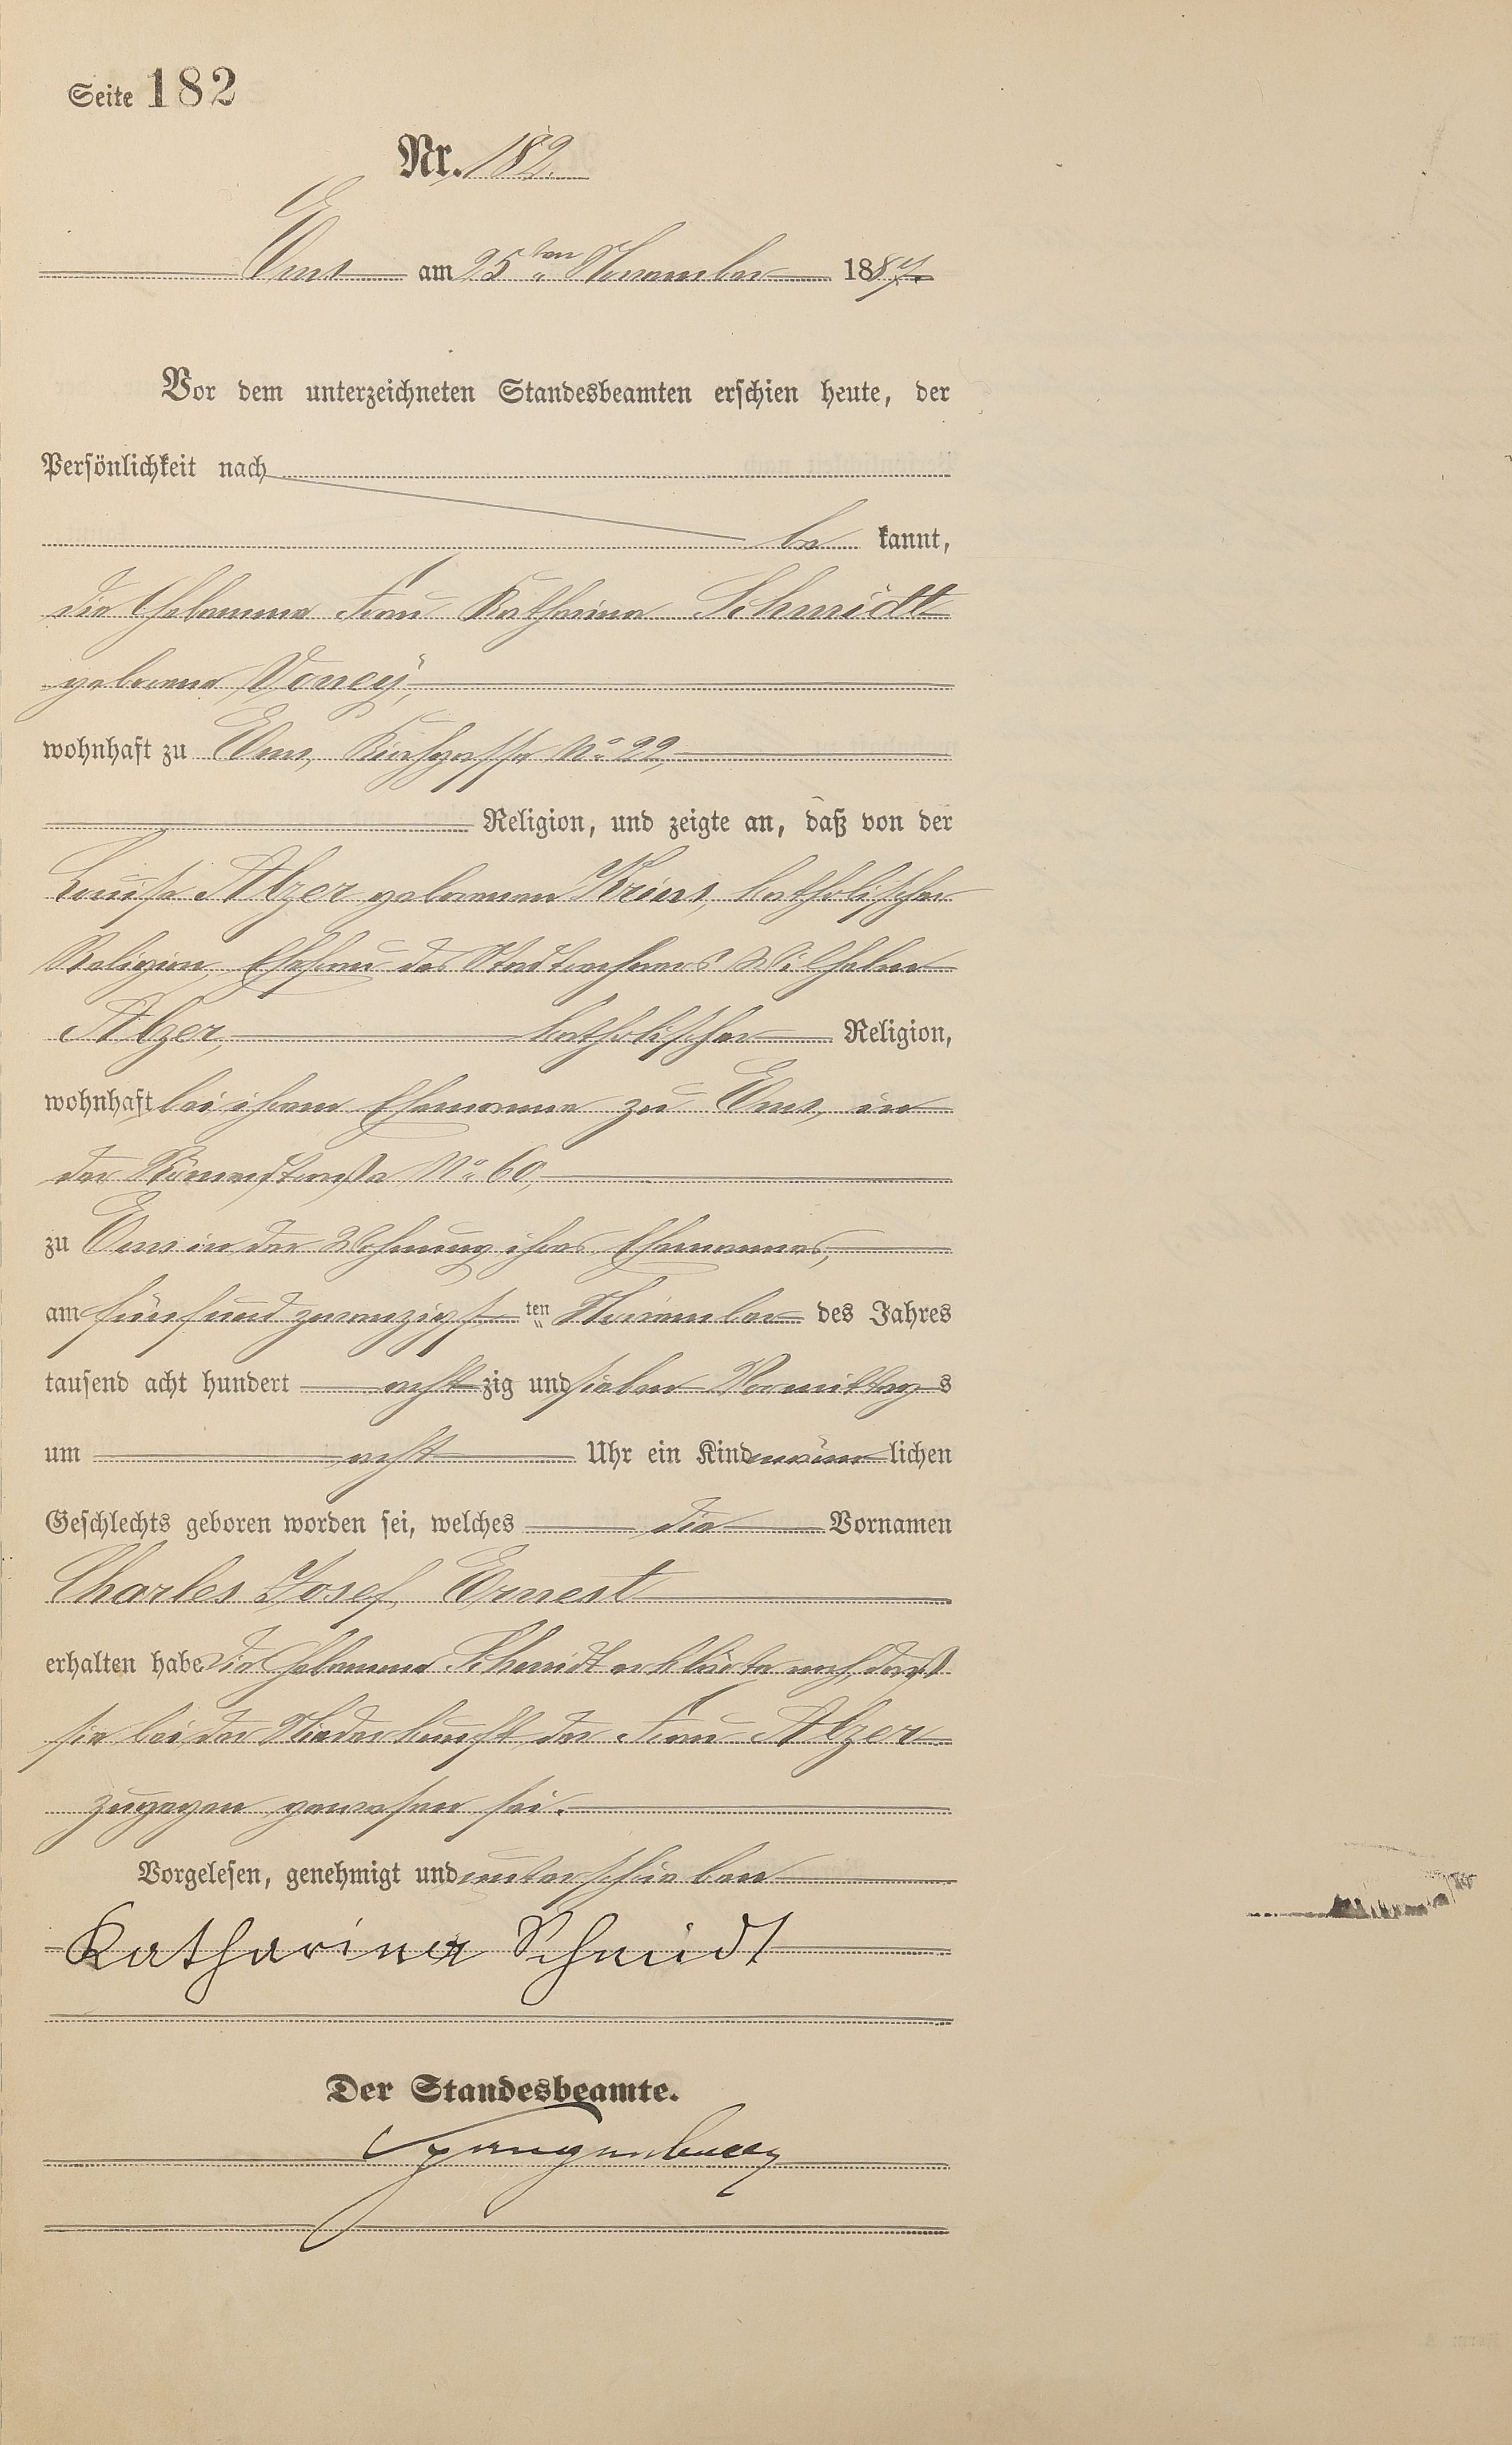 Seite 182
Nr. 182.
Ems am 25ten November 1887.
Vor dem unterzeichneten Standesbeamten erschien heute, der
Persönlichkeit nach
be kannt,
die Hebamme Frau Katharina Schmidt
geborene Voney,
wohnhaft zu Ems, Kirchgasse No 22,
Religion, und zeigte an, daß von der
Louise Alzer geborenen Kriens, katholischer
Religion, Ehefrau des Wilhelm
Alzer, katholischer Religion,
wohnhaft bei ihrem Ehemanne zu Ems, in
der Römerstraße No 60,
zu Ems in der Wohnung ihres Ehemannes,
am fünfundzwanzigsten November des Jahres
tausend acht hundert achtzig und sieben Vormittags
um acht Uhr ein Kind männlichen
Geschlechts geboren worden sei, welches die Vornamen
Charles Josef Ernest
erhalten habe Die Hebamme Schmidt erklärte noch, daß
sie bei der Niederkunft der Frau Alzer
zugegen gewesen sei.
Vorgelesen, genehmigt und unterschrieben
Katharina Schmidt
Der Standesbeamte.
Spangenberg